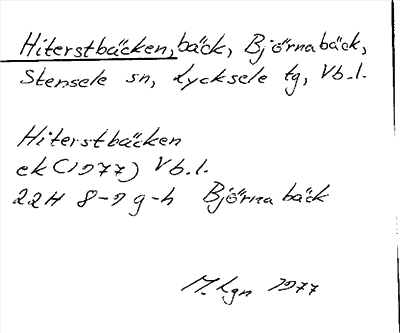 Hiterstbäcken, bäck, Björnabäck,
Stensele sn, Lycksele tg, Vb.l.
Hiterstbäcken
ek (1977) Vb.l.
22H 8-9 g-h Björnabäck
M. Lgn 1977